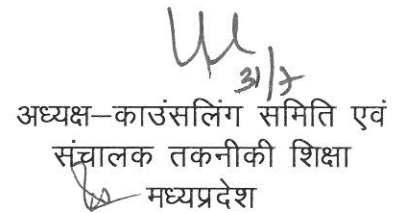 31/7
अध्यक्ष–काउंसलिंग समिति एवं
संचालक तकनीकी शिक्षा
मध्यप्रदेश